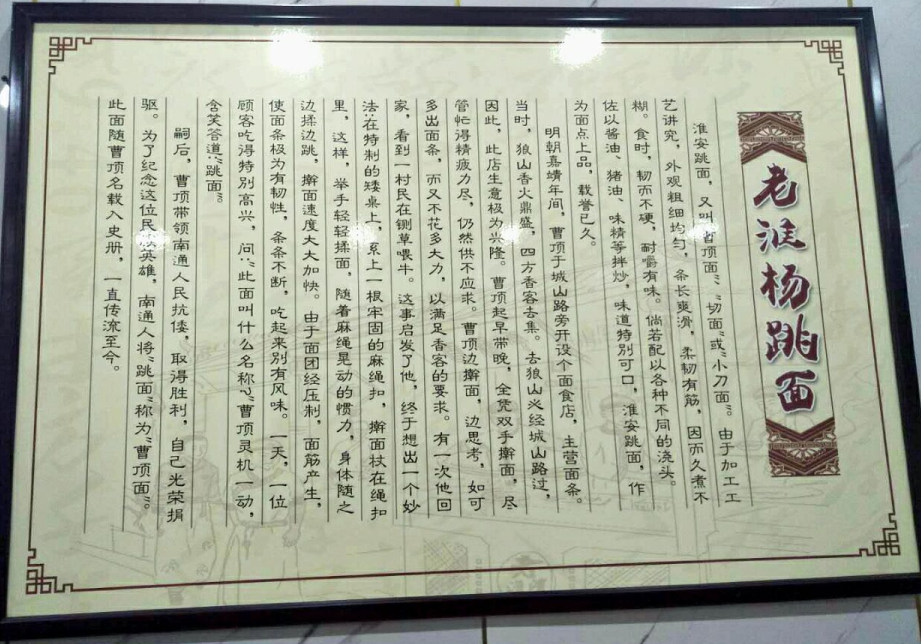 老淮杨跳面
淮安跳面，又叫“曹顶面”、“切面”或“小刀面”。由于加工工
艺讲究，外观粗细均匀，条长爽滑，柔韧有筋，因而久煮不
糊。食时，韧而不硬，耐嚼有味。倘若配以各种不同的浇头。
佐以酱油、猪油、味精等拌炒，味道特别可口，淮安跳面，作
为面点上品，载誉已久。
明朝嘉靖年间，曹顶于城山路旁开设个面食店，主营面条。
当时，狼山香火鼎盛，四方香客去集。去狼山必经城山路过，
因此，此店生意极为兴隆。曹顶起早带晚，全凭双手擀面，尽
管忙得精疲力尽，仍然供不应求。曹顶边擀面，边思考，如可
多出面条，而又不花多大力，以满足香客的要求。有一次他回
家，看到一村民在铡草喂牛。这事启发了他，终于想出一个妙
法：在特制的矮桌上，系上一根牢固的麻绳扣，擀面杖在绳扣
里，这样，举手轻轻揉面，随着麻绳晃动的惯力，身体随之
边揉边跳，擀面速度大大加快。由于面团经压制，面筋产生，
使面条极为有韧性，条条不断，吃起来别有风味。一天，一位
顾客吃得特别高兴，问：“此面叫什么名称？”曹顶灵机一动，
含笑答道：“跳面”
嗣后，曹顶带领南通人民抗倭，取得胜利，自己光荣捐
驱。为了纪念这位民族英雄，南通人将“跳面”称为“曹顶面”。
此面随曹顶名载入史册，一直传流至今。